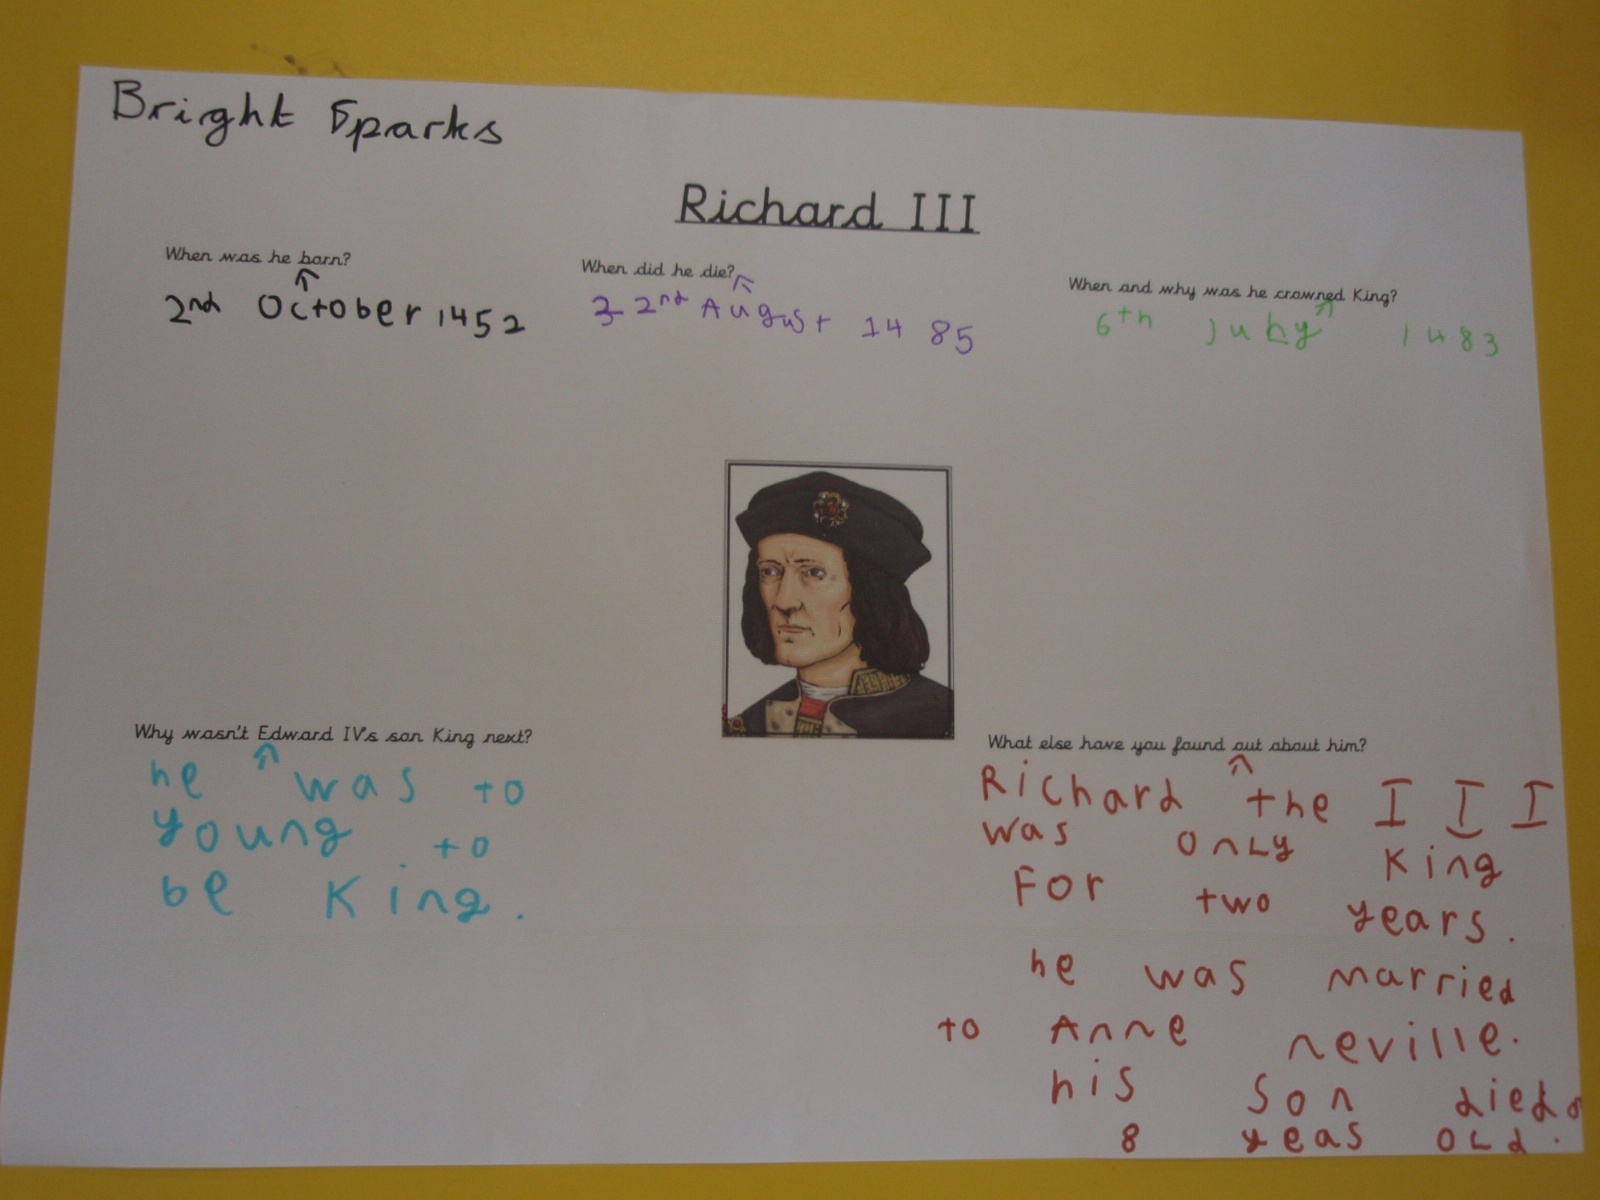 Bright Sparks
Richard III
When was he born?
2nd October 1452
When did he die?
22nd August 1485
When and why was he crowned King?
6th july 1483
Why wasn't Edward IV's son King next?
he was to
young to
be King.
What else have you found out about him?
Richard the III
was only King
For two years.
he was married
to Anne neville.
his son died
8 yeas old.